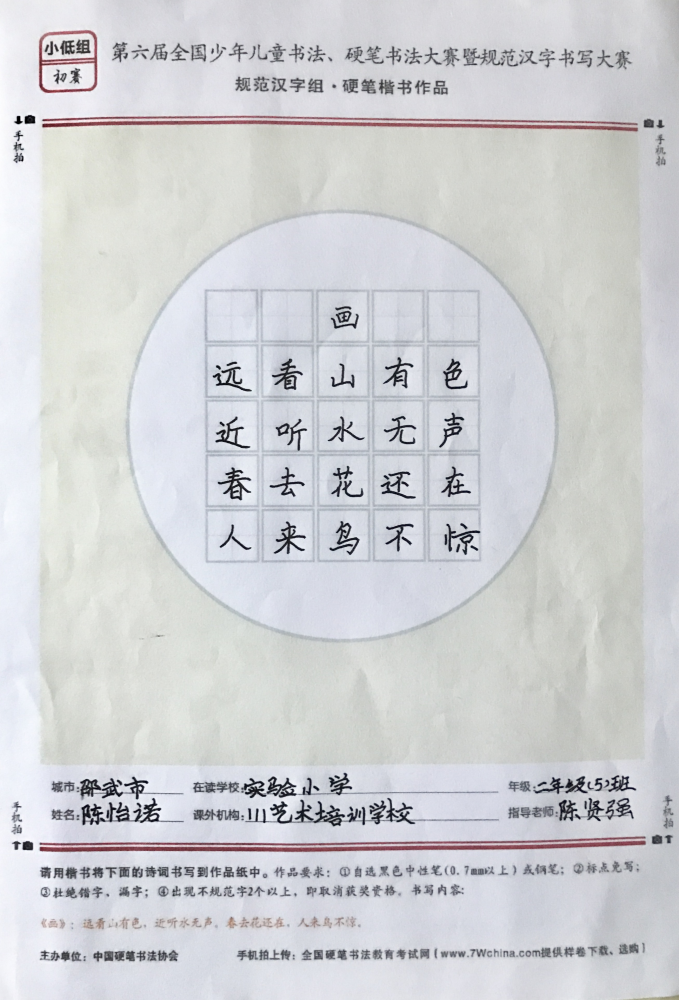 小低组
初赛
第六届全国少年儿童书法、硬笔书法大赛暨规范汉字书写大赛
规范汉字组·硬笔楷书作品
手机拍
手机拍
画
远看山有色
近听水无声
春去花还在
人来鸟不惊
城市：邵武市 在读学校：实验小学 年级：二年级(5)班
姓名：陈怡诺 课外机构：111艺术培训学校 指导老师：陈贤强
手机拍
手机拍
请用楷书将下面的诗词书写到作品纸中。作品要求：①自选黑色中性笔(0.7mm以上)或钢笔；②标点免写；
③杜绝错字、漏字；④出现不规范字2个以上，即取消获奖资格。书写内容：
《画》：远看山有色，近听水无声。春去花还在，人来鸟不惊。
主办单位：中国硬笔书法协会 手机拍上传：全国硬笔书法教育考试网［www.7Wchina.com提供样卷下载、选购］